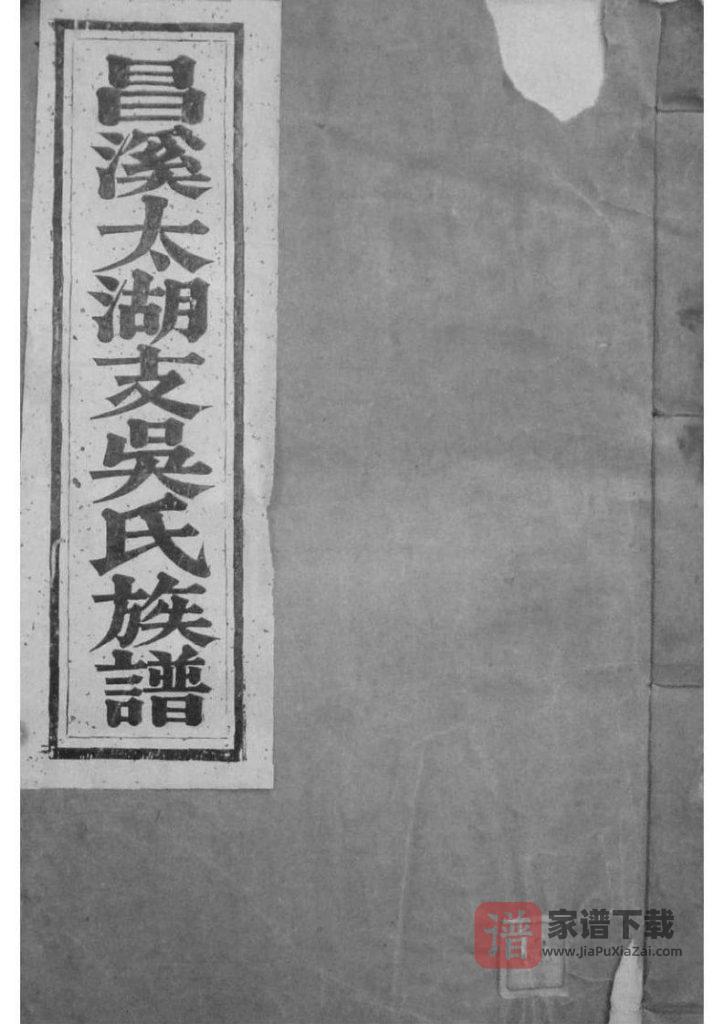 昌溪太湖支吳氏族譜
谱
家谱下载
www.JiaPuXiaZai.com